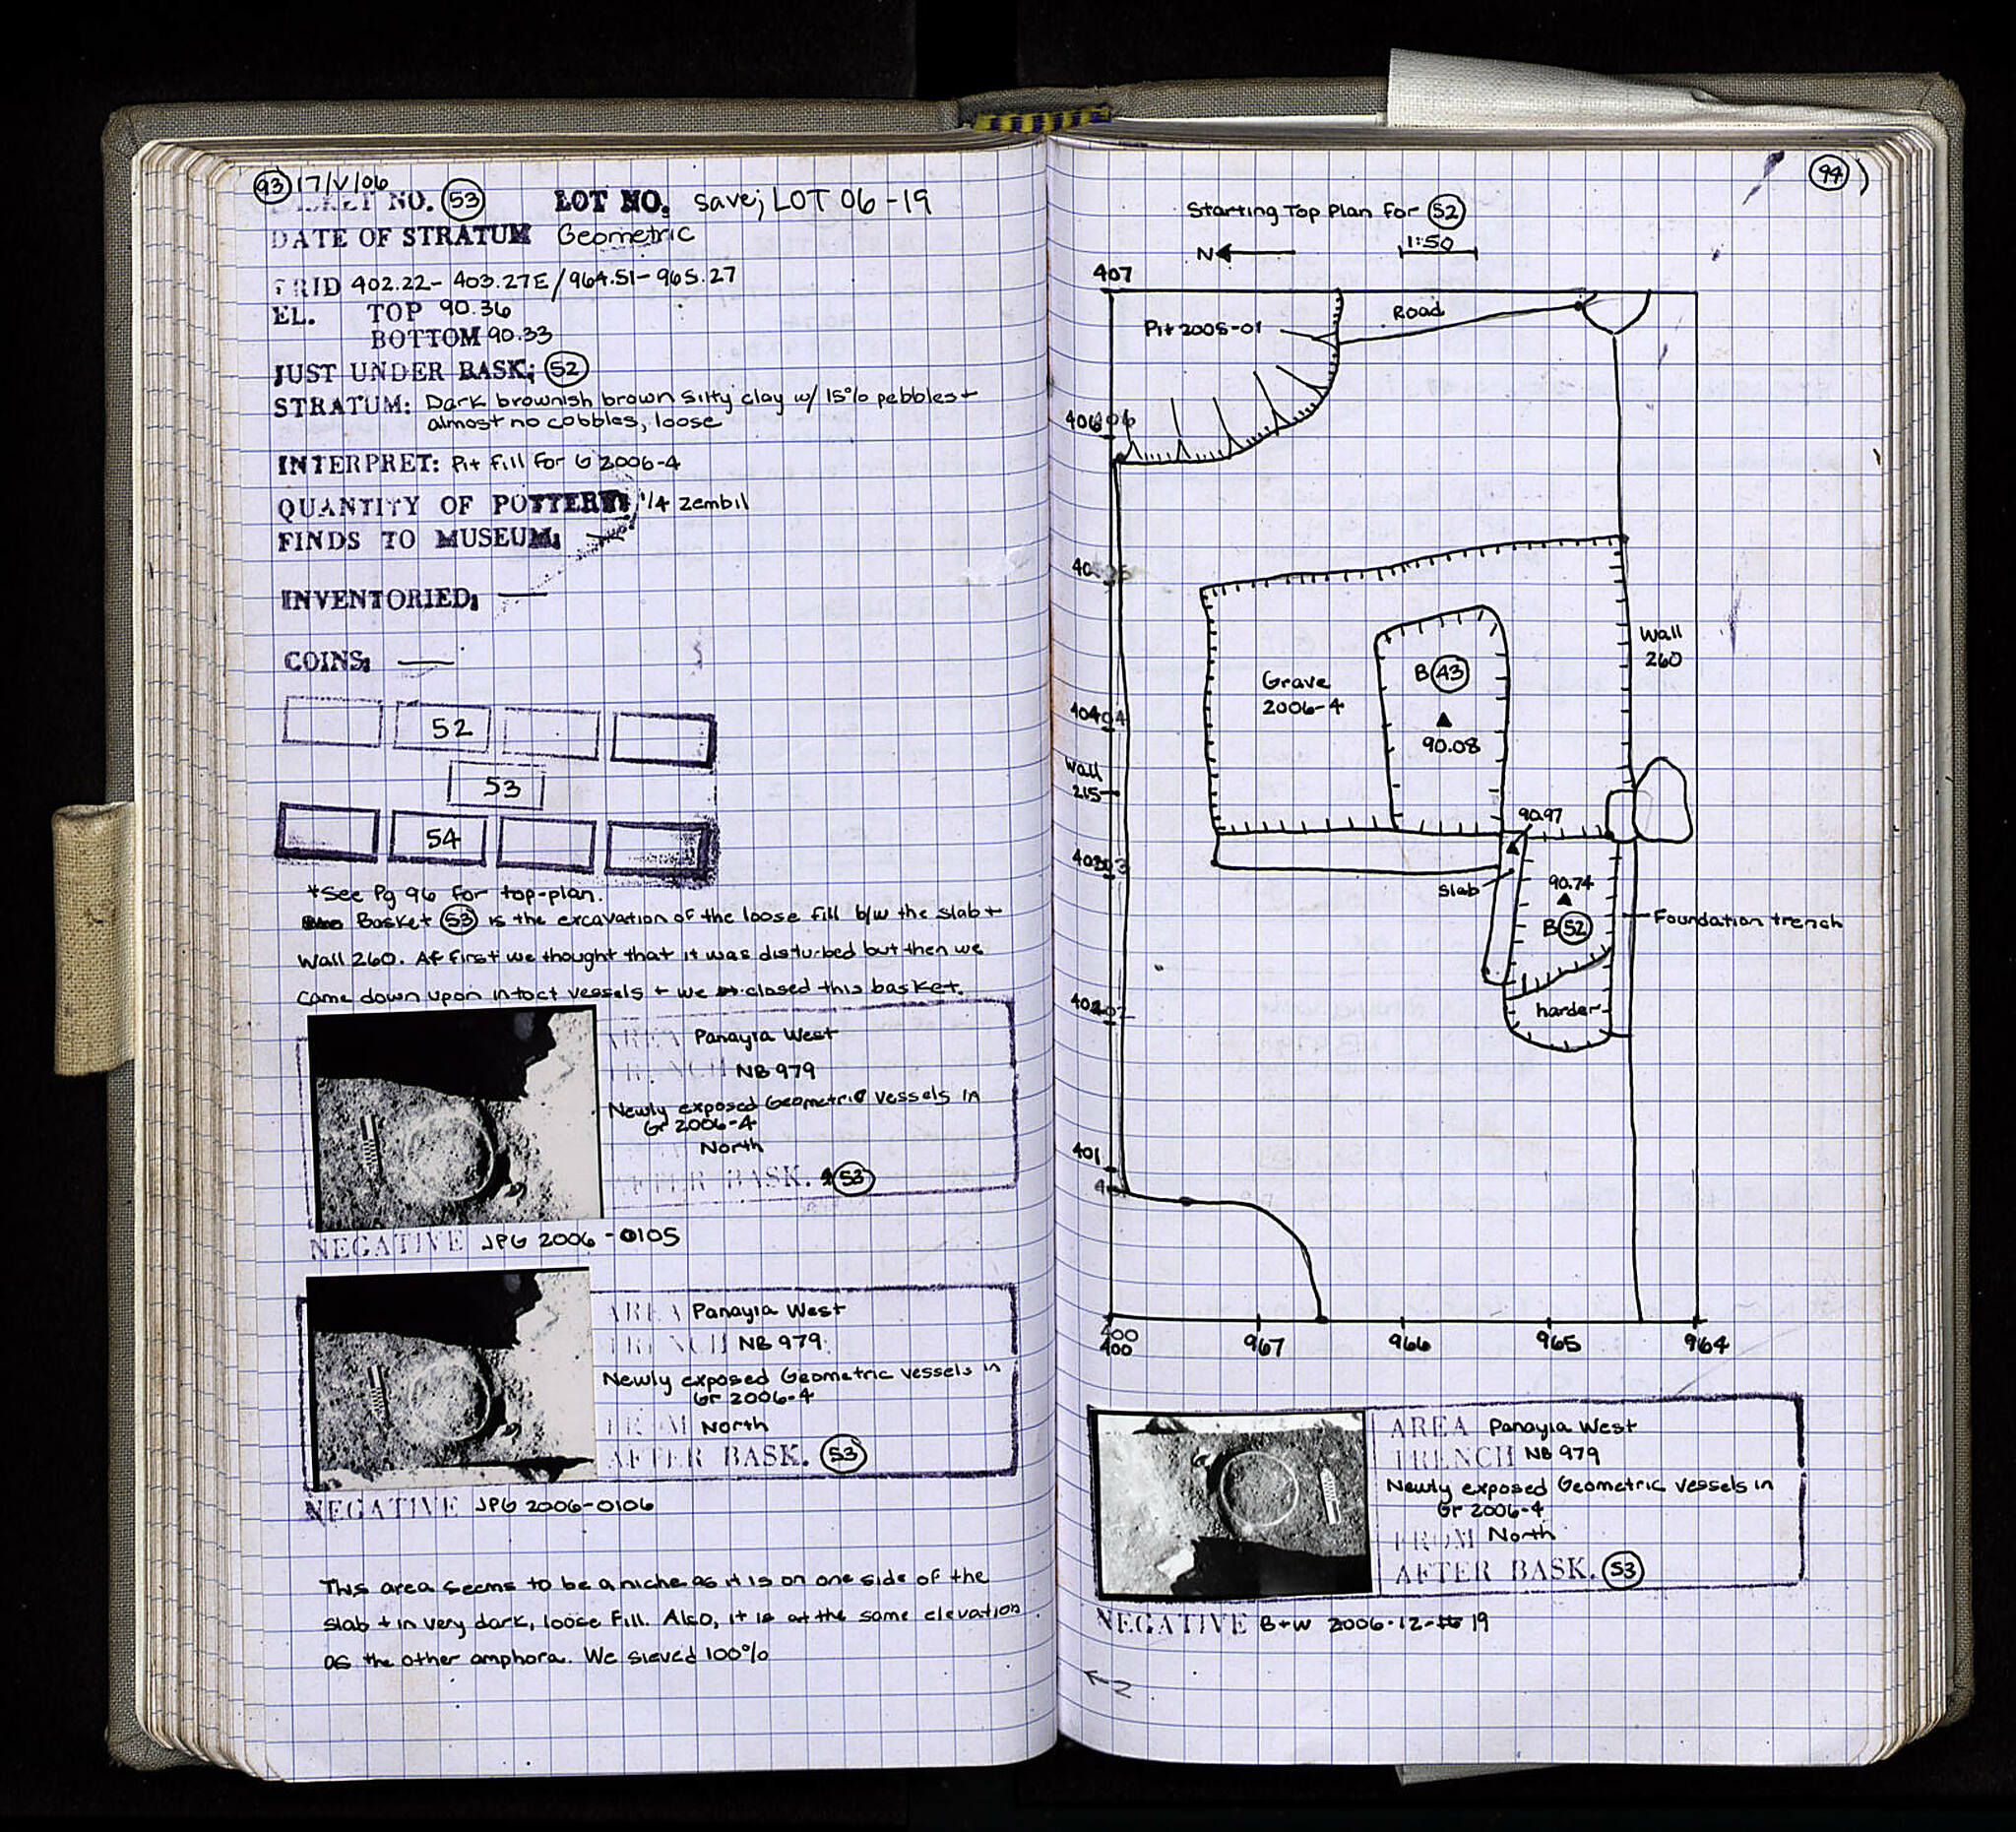 93 17/V/06
BASKET NO. 53 LOT NO. save; LOT 06-19
DATE OF STRATUM Geometric
GRID 402.22-403.27E/964.51-965.27
EL. TOP 90.36
BOTTOM 90.33
JUST UNDER BASK: 52
STRATUM: Dark brownish brown silty clay w/ 15% pebbles +
almost no cobbles, loose
INTERPRET: Pit fill for G 2006-4
QUANTITY OF POTTERY: 1/4 zembil
FINDS TO MUSEUM: —
INVENTORIED: —
COINS: —
52
53
54
*See Pg 96 for top-plan.
Basket 53 is the excavation of the loose fill b/w the slab +
Wall 260. At first we thought that it was disturbed but then we
came down upon intact vessels + we closed this basket.
AREA Panayia West
TRENCH NB 979
Newly exposed Geometric vessels in
Gr 2006-4
North
AFTER BASK. 53
NEGATIVE JPG 2006-0105
AREA Panayia West
TRENCH NB 979
Newly exposed Geometric vessels in
Gr 2006-4
FROM North
AFTER BASK. 53
NEGATIVE JPG 2006-0106
This area seems to be a niche as it is on one side of the
slab + in very dark, loose fill. Also, it is at the same elevation
as the other amphora. We sieved 100%
94
Starting Top Plan for 52
N 1:50
407
Pit 2005-01
Road
406
405
Wall
260
Grave
2006-4
B 43
90.08
404
Wall
215
90.97
403
slab
90.74
B 52
Foundation trench
402
harder
401
400
400
967 966 965 964
AREA Panayia West
TRENCH NB 979
Newly exposed Geometric vessels in
Gr 2006-4
FROM North
AFTER BASK. 53
NEGATIVE B+W 2006-12-19
N